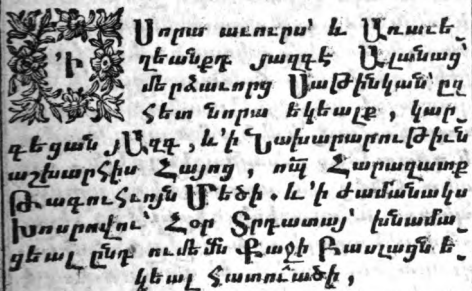 ՚Ի Սորա աւուրս՝ և Առաւե֊
ղեանքդ յազգէ Ալանաց՝
մերձաւորց Սաթինկան՝ ըղ
Հետ նորա եկեալք , կար֊
գեցան յԱզգ , և՚ի Նախարարութիւն
աշխարհիս Հայոց , ոպ̃ Հարազատք
Թագուհւոյն Մեծի . և՚ի ժամանակս
Խոսրովու՝ Հօր Տրդատայ՝ խնամա֊
ցեալ ընդ ումեմն Քաջի Բասլացն ե֊
կեալ Հատուածի ,